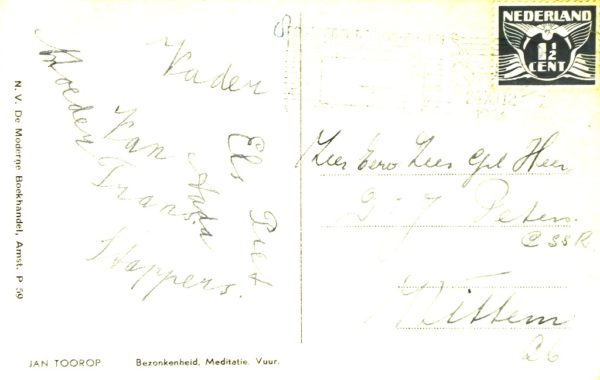 NEDERLAND
1½
CENT
Vader
Moeder
Van Aada
Frans.
Stappers.
Els Piet
Zeer Eerw Zeer Gel Heer
G. J. Peters.
C SS R
Wittem
N. V. De Moderne Boekhandel, Amst. P 59
JAN TOOROP Bezonkenheid. Meditatie. Vuur.